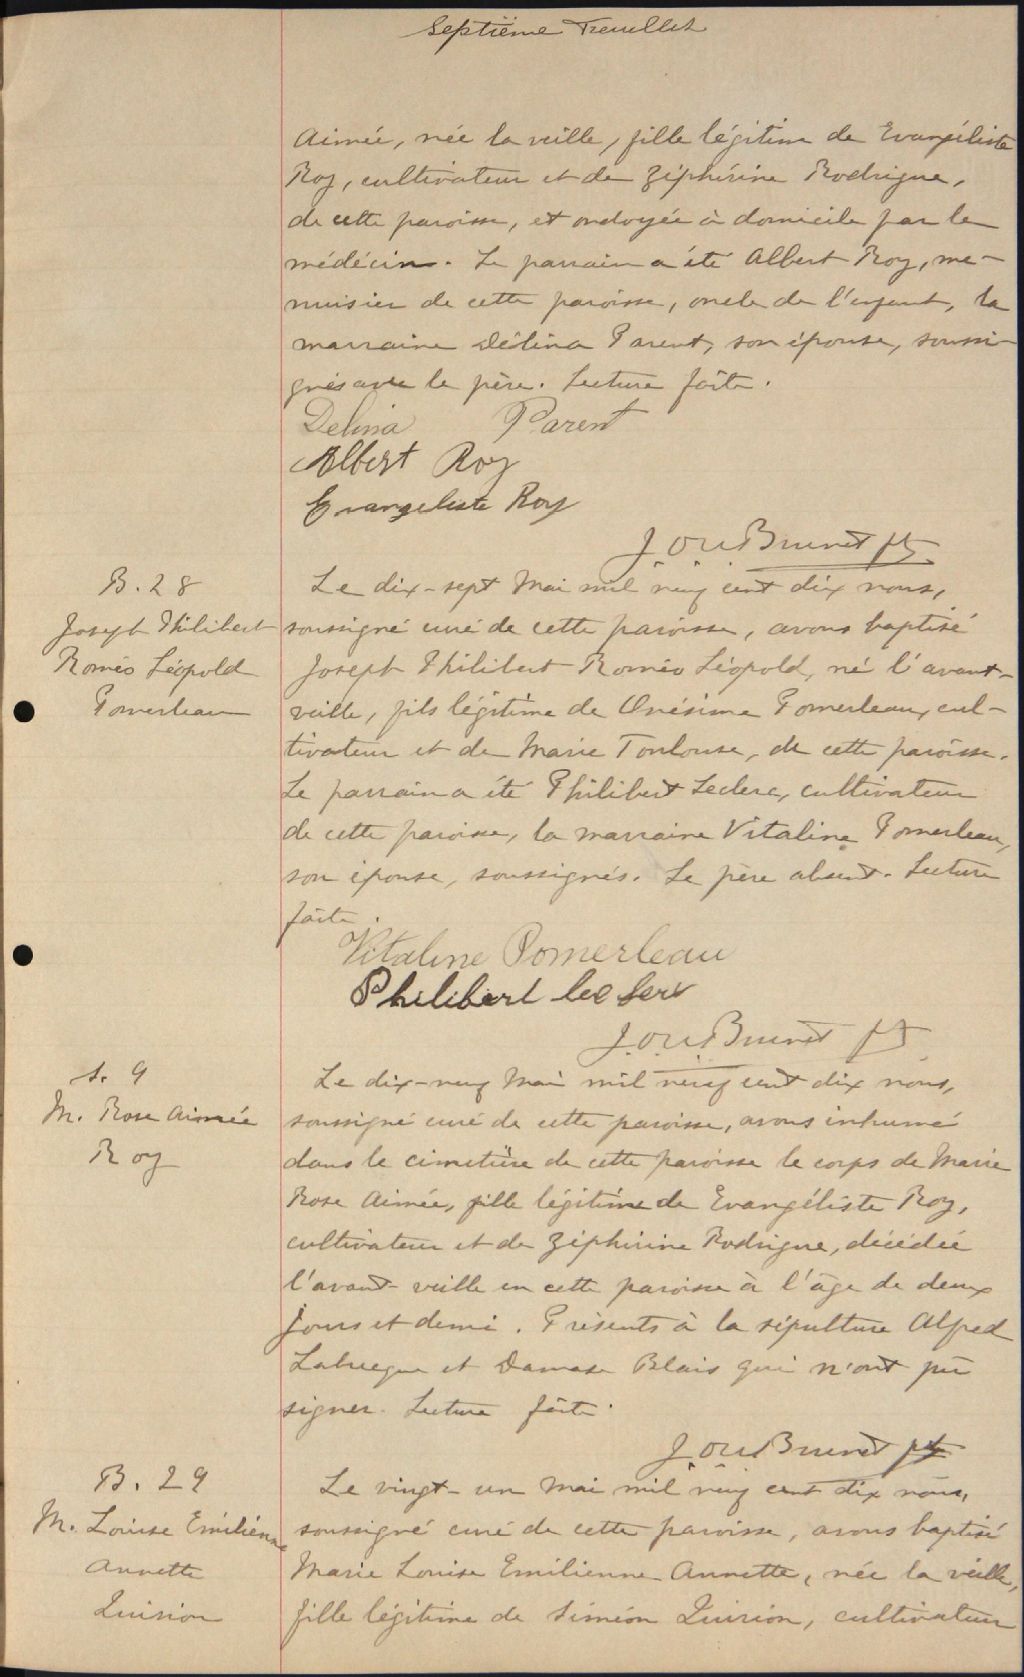 Septième Feuillet
Aimée, née la veille, fille légitime de Evangéliste
Roy, cultivateur et de Zéphirine Rodrigue,
de cette paroisse, et ondoyée à domicile par le
médécin. Le parrain a été Albert Roy, me-
nuisier de cette paroisse, oncle de l'enfant, la
marraine Délina Parent, son épouse, soussi-
gnés avec le père. Lecture faite.
Delina Parent
Albert Roy
Evangeliste Roy
J. O. Brunet ptr
B. 28
Joseph Philibert
Roméo Léopold
Pomerleau
Le dix-sept Mai mil neuf cent dix nous,
soussigné curé de cette paroisse, avons baptisé
Joseph Philibert Roméo Léopold, né l'avant-
veille, fils légitime de Onésime Pomerleau, cul-
tivateur et de Marie Toulouse, de cette paroisse.
Le parrain a été Philibert Leclerc, cultivateur
de cette paroisse, la marraine Vitaline Pomerleau,
son épouse, soussignés. Le père absent. Lecture
faite.
Vitaline Pomerleau
Philibert leclerc
J. O. Brunet ptr
S. 9
M. Rose Aimée
Roy
Le dix-neuf Mai mil neuf cent dix nous,
soussigné curé de cette paroisse, avons inhumé
dans le cimetière de cette paroisse le corps de Marie
Rose Aimée, fille légitime de Evangéliste Roy,
cultivateur et de Zéphirine Rodrigue, décédée
l'avant-veille en cette paroisse à l'âge de deux
jours et demi. Présents à la sépulture Alfred
et Damase Blais qui n'ont pu
signer. Lecture faite.
J. O. Brunet ptr
B. 29
M. Louise Emilienne
Annette
Quirion
Le vingt-un Mai mil neuf cent dix nous,
soussigné curé de cette paroisse, avons baptisé
Marie Louise Emilienne Annette, née la veille,
fille légitime de Siméon Quirion, cultivateur